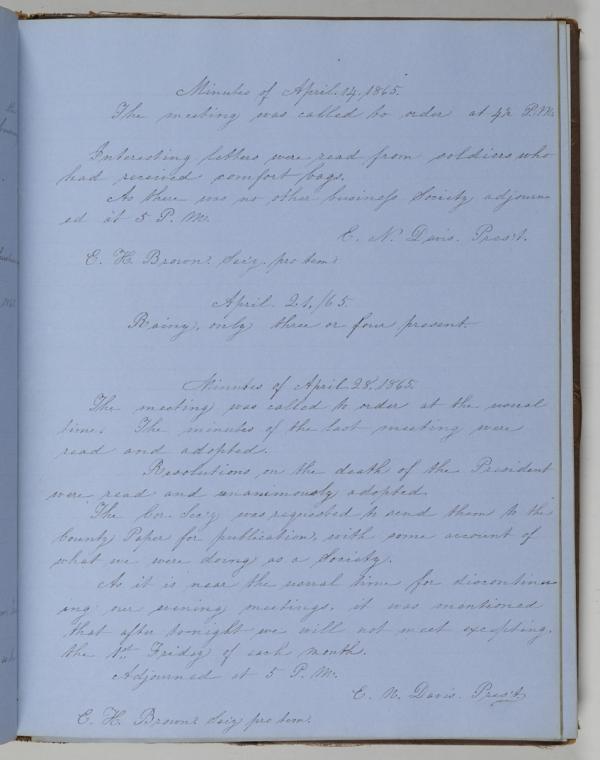 Minutes of April. 14. 1865.
The meeting was called to order at 4½ P. M.
Interesting letters were read from soldiers who
had received comfort bags.
As there was no other business Society adjourn-
ed at 5 P. M.
C. N. Davis. Pres't.
E. H. Brown. Sec'y. pro tem.
April. 21. /65.
Rainy, only three or four present.
Minutes of April 28. 1865.
The meeting was called to order at the usual
time. The minutes of the last meeting were
read and adopted.
Resolutions on the death of the President
were read and unanimously adopted.
The Cor. Sec'y was requested to send them to the
County Paper for publication, with some account of
what we were doing as a Society.
As it is near the usual time for discontinu-
ing our evening meetings, it was mentioned
that after to-night we will not meet excepting,
the 1st Friday of each month.
Adjourned at 5 P. M.
C. N. Davis. Pres't
E. H. Brown. Sec'y pro tem.